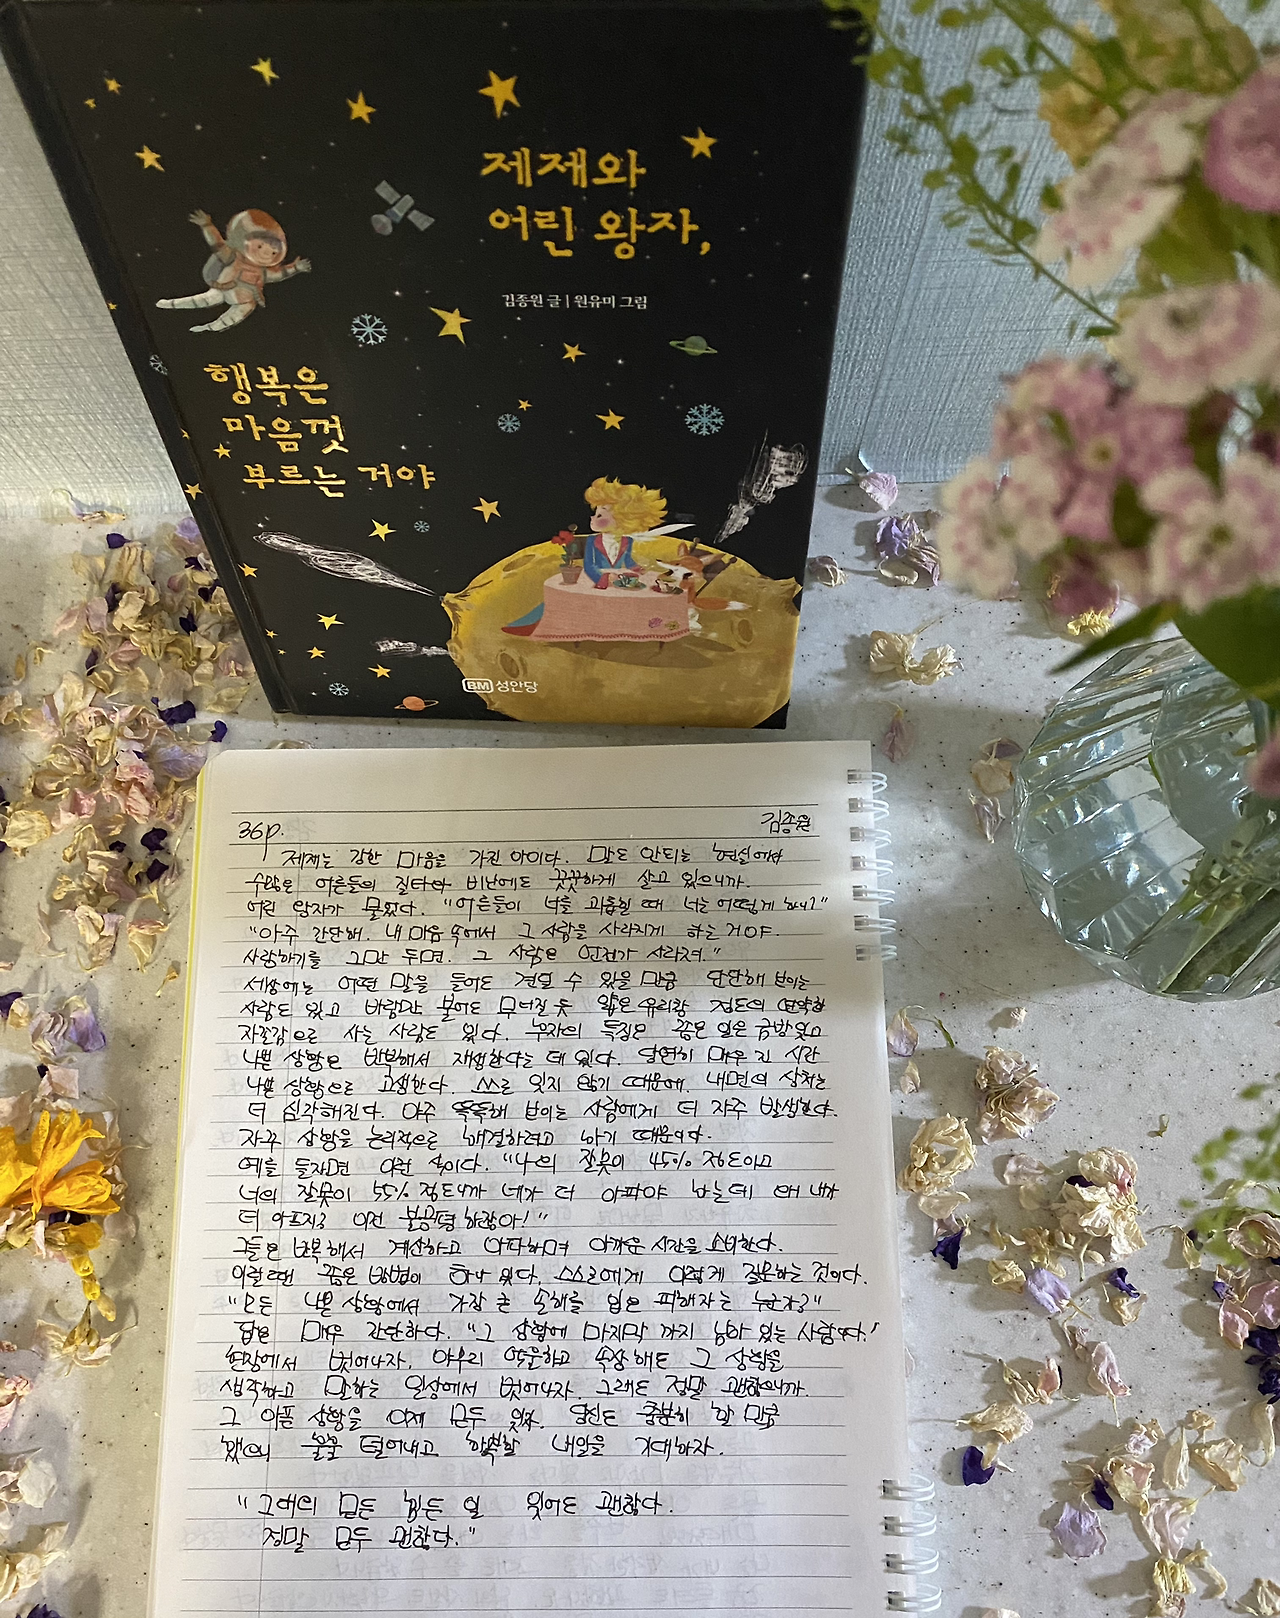 제제와
어린 왕자,
김종원 글 | 원유미 그림
행복은
마음껏
부르는 거야
BM 성안당
36p. 김종원
제제는 강한 마음을 가진 아이다. 말도 안되는 현실에서
수많은 어른들의 질타와 비난에도 꿋꿋하게 살고 있으니까.
어린 왕자가 물었다. "어른들이 너를 괴롭힐 때 너는 어떻게 하니?"
"아주 간단해. 내 마음 속에서 그 사람을 사라지게 하는 거야.
사랑하기를 그만 두면. 그 사람은 언젠가 사라져."
세상에는 어떤 말을 들어도 견딜 수 있을 만큼 단단해 보이는
사람도 있고 바람만 불어도 무너질 듯 얇은 유리창 정도의 연약한
자존감으로 사는 사람도 있다. 후자의 특징은 좋은 일은 금방 잊고
나쁜 상황은 반복해서 재생한다는 데 있다. 당연히 매우 긴 시간
나쁜 상황으로 고생한다. 스스로 잊지 않기 때문에. 내면의 상처는
더 심각해진다. 아주 똑똑해 보이는 사람에게 더 자주 발생한다.
자꾸 상황을 논리적으로 해결하려고 하기 때문이다.
예를 들자면 이런 식이다. "나의 잘못이 45% 정도이고
너의 잘못이 55% 정도니까 네가 더 아파야 하는데 왜 내가
더 아프지? 이건 불공평하잖아!"
그들은 반복해서 계산하고 아파하며 아까운 시간을 소비한다.
이럴 땐 좋은 방법이 하나 있다. 스스로에게 이렇게 질문하는 것이다.
"모든 나쁜 상황에서 가장 큰 손해를 입은 피해자는 누군가?"
답은 매우 간단하다. "그 상황에 마지막 까지 남아 있는 사람이다."
현장에서 벗어나자. 아무리 억울하고 속상해도 그 상황을
생각하고 말하는 일상에서 벗어나자. 그래도 정말 괜찮으니까.
그 아픈 상황을 이제 모두 잊자. 당신도 충분히 할 만큼
했으니 훌훌 털어내고 행복할 내일을 기대하자.
"그대의 모든 힘든 일 잊어도 괜찮다.
정말 모두 괜찮다."